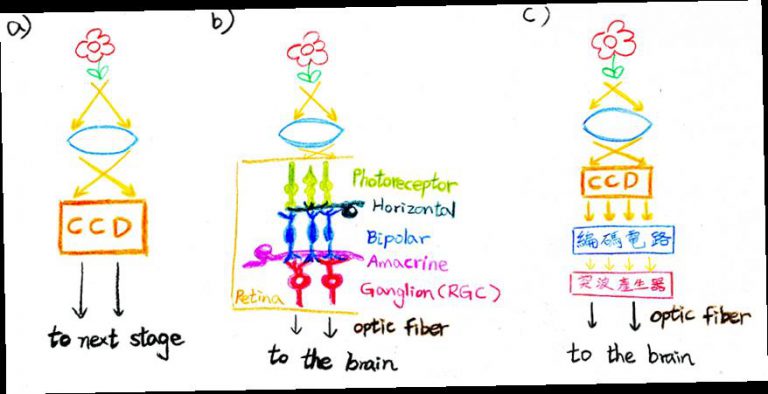 a)
CCD
to next stage
b)
Photoreceptor
Horizontal
Bipolar
Amacrine
Ganglion (RGC)
Retina
optic fiber
to the brain
c)
CCD
編碼電路
突波產生器
optic fiber
to the brain